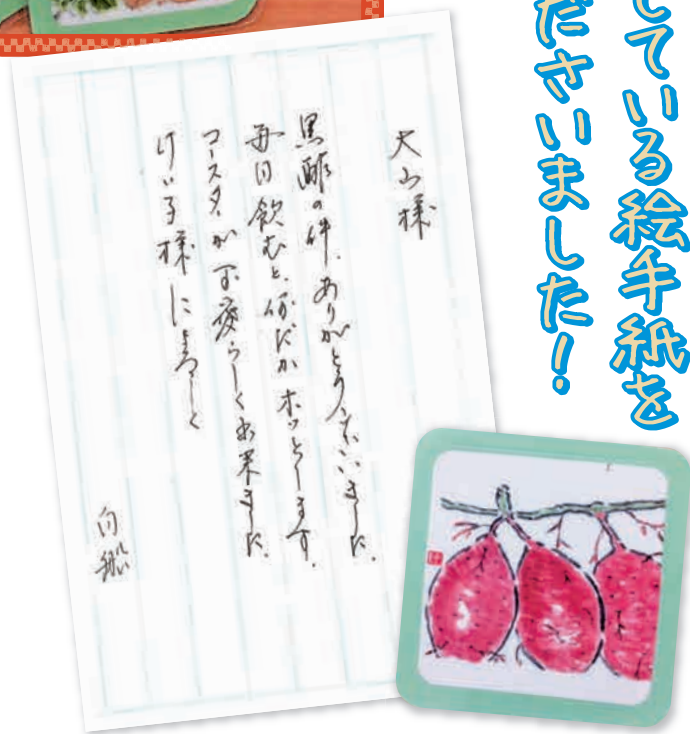 している絵手紙を
ださいました！
大山様
黒酢の件、ありがとうございました。
毎日飲むと、何だかホッとします。
コースターが可愛らしく出来ました。
けい子様によろしく